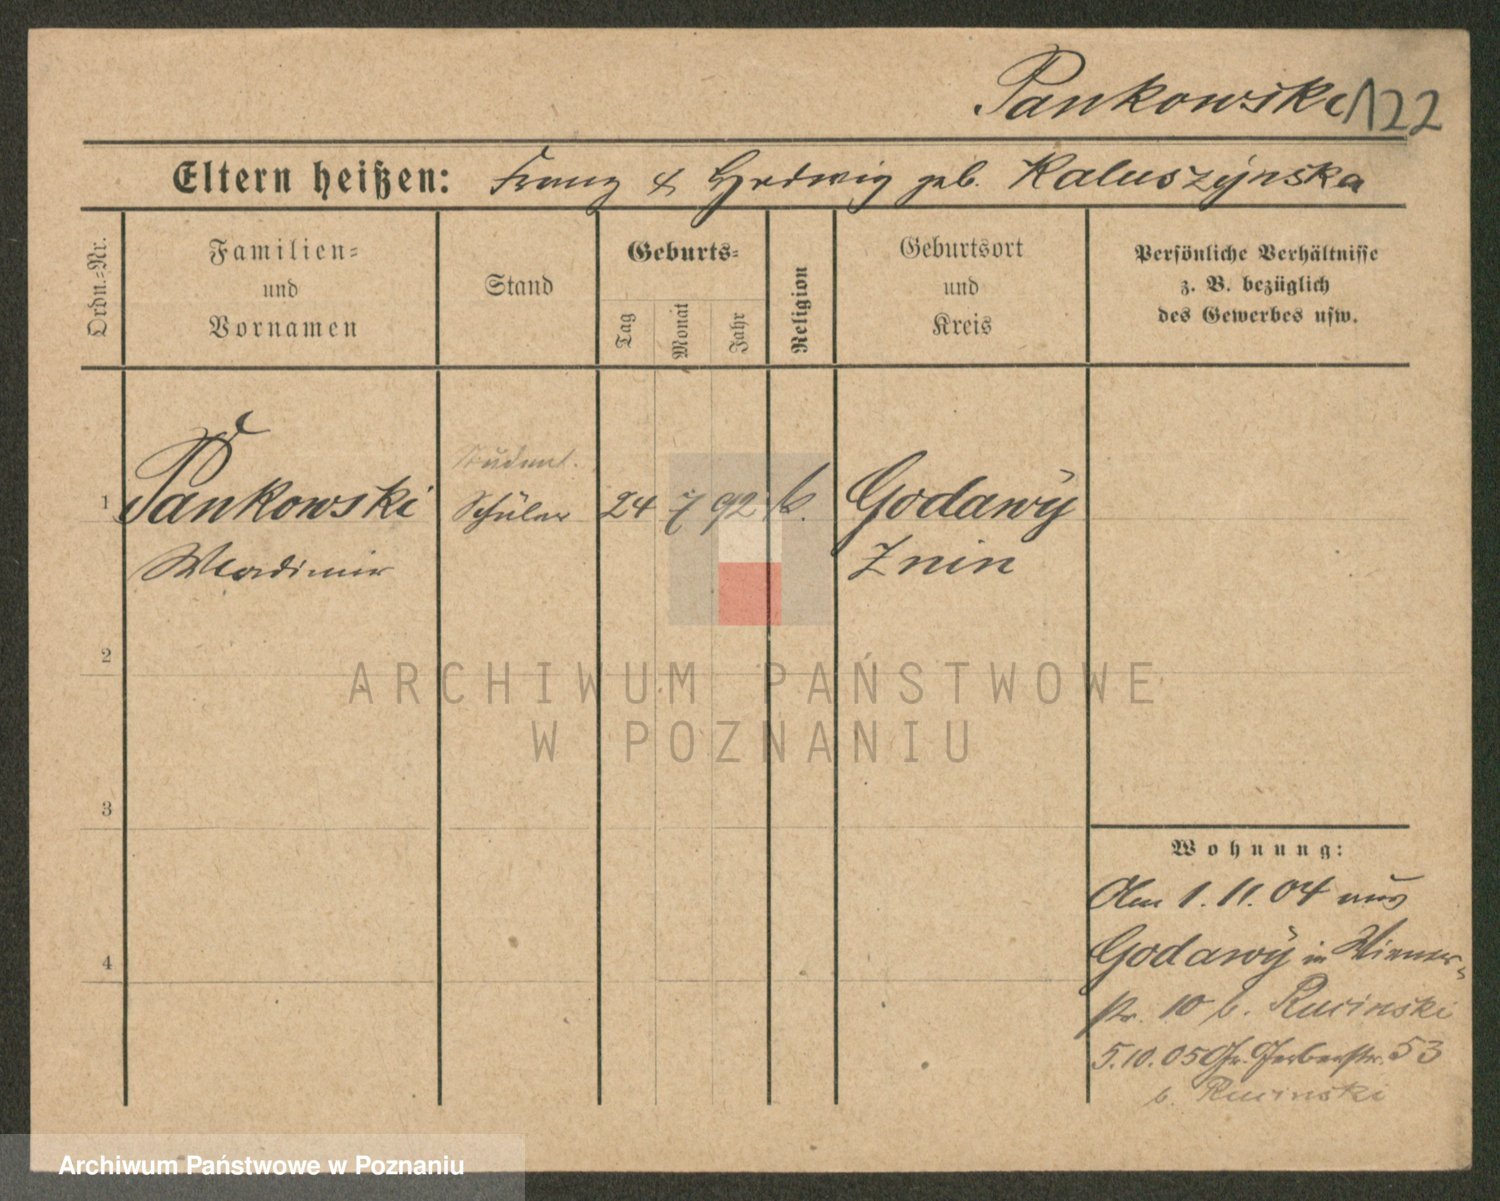 Pankowski 122
Eltern heißen: Franz & Hedwig geb. Kaluszÿnska
Ordn.-Nr.
Familien-
und
Vornamen
Stand
Geburts-
Tag
Monat
Jahr
Religion
Geburtsort
und
Kreis
Persönliche Verhältnisse
z. B. bezüglich
des Gewerbes usw.
Student.
1 Pankowski Schüler 24 7 92 k. Godawÿ
Wladimir Znin
2
ARCHIWUM PAŃSTWOWE
W POZNANIU
3
4
Wohnung:
Am 1. 11. 04 aus
Godawÿ in Wiener-
str. 10 b. Rucinski
5.10.05 Gr. Gerberstr. 53
b. Rucinski
Archiwum Państwowe w Poznaniu